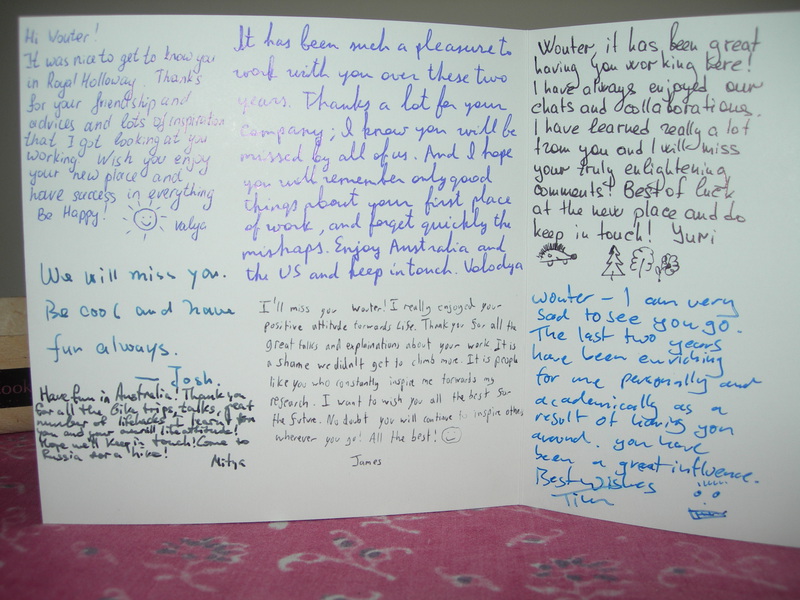 Hi Wouter!
It was nice to get to know you
in Royal Holloway. Thanks
for your friendship and
advices and lots of inspiration
that I got looking at you
working. Wish you enjoy
your new place and
have success in everything
Be Happy! Valya
We will miss you.
Be cool and have
fun always.
— Josh.
Have fun in Australia! Thank you
for all the trips, talks, great
number of lifehacks I learnt from
you and your overall life attitude!
Hope we'll keep in touch! Come to
Russia for a hike!
Mitya
It has been such a pleasure to
work with you over these two
years. Thanks a lot for your
company; I know you will be
missed by all of us. And I hope
you will remember only good
things about your first place
of work, and forget quickly the
mishaps. Enjoy Australia and
the US and keep in touch. Volodya
I'll miss you Wouter! I really enjoyed your
positive attitude torwards life. Thank you for all the
great talks and explanations about your work. It is
a shame we didn't get to climb more. It is people
like you who constantly inspire me torwards my
research. I want to wish you all the best for
the future. No doubt you will continue to inspire others
wherever you go! All the best!
James
Wouter, it has been great
having you working here!
I have always enjoyed our
chats and collaborations.
I have learned really a lot
from you and I will miss
your truly enlightening
comments! Best of luck
at the new place and do
keep in touch! Yuri
Wouter – I am very
sad to see you go.
The last two years
have been enriching
for me personally and
academically as a
result of having you
around. You have
been a great influence.
Best wishes
Tim
ook